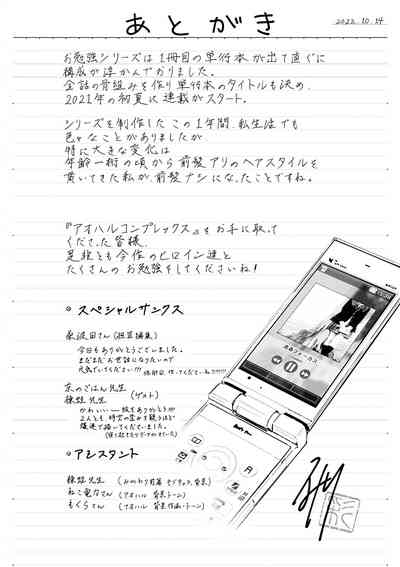 あとがき
2022.10.14
お勉強シリーズは1冊目の単行本が出て直ぐに
構成が浮かんでおりました。
全話の骨組みを作り単行本のタイトルも決め、
2021年の初夏に連載がスタート。
シリーズを制作したこの1年間、私生活でも
色々なことがありましたが
特に大きな変化は
年齢一桁の頃から前髪アリのヘアスタイルを
貫いてきた私が、前髪ナシになったことですね。
『アオハルコンプレックス』をお手に取って
くださった皆様、
是非とも今作のヒロイン達と
たくさんのお勉強をしてくださいね!
スペシャルサンクス
桑波田さん(担当編集)
今日もありがとうございました。
まだまだお世話になりたいので
元気でいてください!!!
京のごはん先生
(ゲスト)
かわいい
アシスタント
ねこ竜なさん(アオハル 背景トーン)
もくらさん(アオハル 背景作画・トーン)